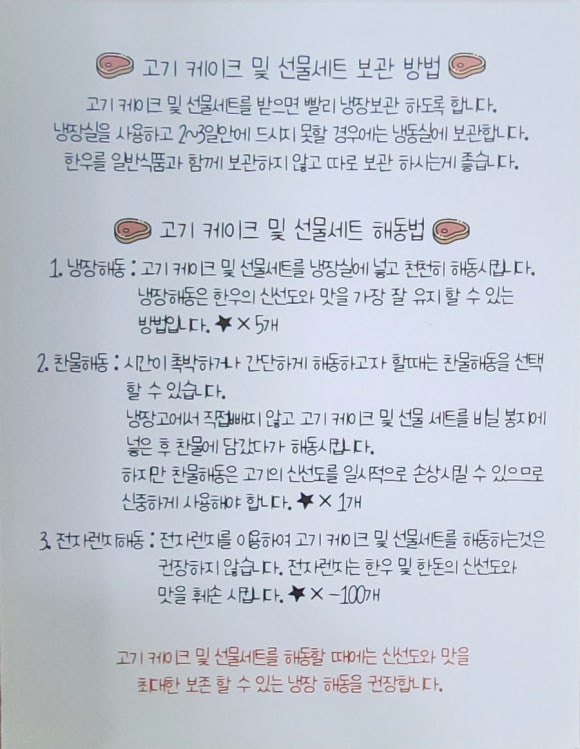 고기 케이크 및 선물세트 보관 방법
고기 케이크 및 선물세트를 받으면 빨리 냉장보관 하도록 합니다.
냉장실을 사용하고 2~3일안에 드시지 못할 경우에는 냉동실에 보관합니다.
한우를 일반식품과 함께 보관하지 않고 따로 보관 하시는게 좋습니다.
고기 케이크 및 선물세트 해동법
1. 냉장해동 : 고기 케이크 및 선물세트를 냉장실에 넣고 천천히 해동시킵니다.
냉장해동은 한우의 신선도와 맛을 가장 잘 유지 할 수 있는
방법입니다. ★×5개
2. 찬물해동 : 시간이 촉박하거나 간단하게 해동하고자 할때는 찬물해동을 선택
할 수 있습니다.
냉장고에서 직접빼지 않고 고기 케이크 및 선물 세트를 비닐 봉지에
넣은 후 찬물에 담갔다가 해동시킵니다.
하지만 찬물해동은 고기의 신선도를 일시적으로 손상시킬 수 있으므로
신중하게 사용해야 합니다. ★×1개
3. 전자렌지해동 : 전자렌지를 이용하여 고기 케이크 및 선물세트를 해동하는것은
권장하지 않습니다. 전자렌지는 한우 및 한돈의 신선도와
맛을 훼손 시킵니다. ★×-100개
고기 케이크 및 선물세트를 해동할 때에는 신선도와 맛을
최대한 보존 할 수 있는 냉장 해동을 권장합니다.